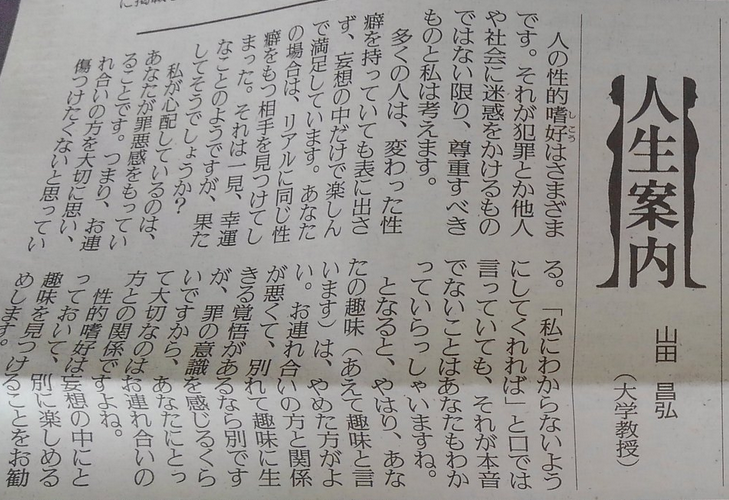 人生案内
山田 昌弘
(大学教授)
人の性的嗜好はさまざま
しこう
です。それが犯罪とか他人
や社会に迷惑をかけるもの
ではない限り、尊重すべき
ものと私は考えます。
多くの人は、変わった性
癖を持っていても表に出さ
ず、妄想の中だけで楽しん
で満足しています。あなた
の場合は、リアルに同じ性
癖をもつ相手を見つけてし
まった。それは一見、幸運
なことのようですが、果た
してそうでしょうか?
私が心配しているのは、
あなたが罪悪感をもってい
ることです。つまり、お連
れ合いの方を大切に思い、
傷つけたくないと思ってい
る。「私にわからないよう
にしてくれれば」と口では
言っていても、それが本音
でないことはあなたもわか
っていらっしゃいますね。
となると、やはり、あな
たの趣味(あえて趣味と言
います)は、やめた方がよ
い。お連れ合いの方と関係
が悪くて、別れて趣味に生
きる覚悟があるなら別です
が、罪の意識を感じるくら
いですから、あなたにとっ
て大切なのはお連れ合いの
方との関係ですよね。
性的嗜好は妄想の中にと
っておいて、別に楽しめる
趣味を見つけることをお勧
めします。